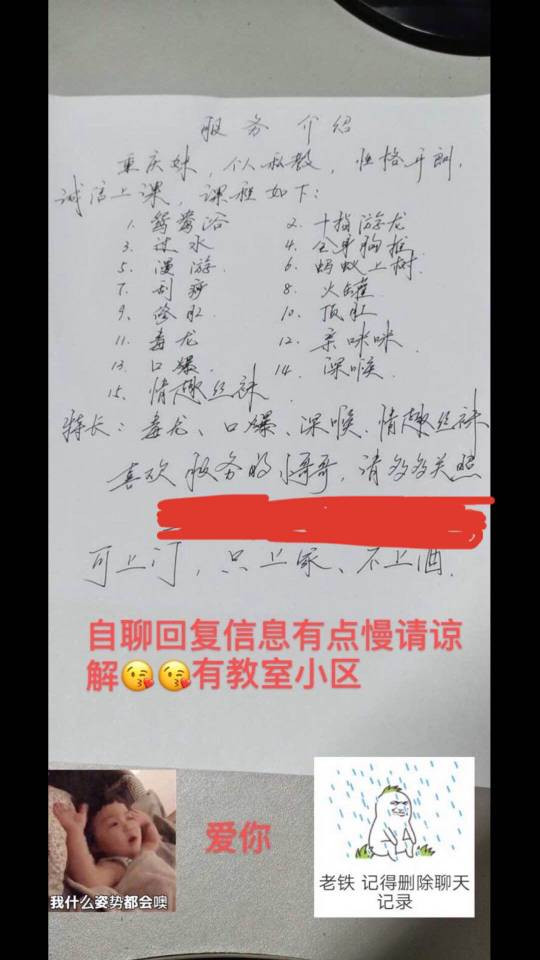 服务介绍
重庆妹,个人私教,性格开朗,
诚信上课,课程如下:
1. 鸳鸯浴 2. 十指游龙
3. 过水 4. 全身胸推
5. 漫游 6. 蚂蚁上树
7. 刮痧 8. 火罐
9. 修肛 10. 顶肛
11. 毒龙 12. 亲咪咪
13. 口爆 14. 深喉
15. 情趣丝袜
特长:毒龙、口爆、深喉、情趣丝袜
喜欢服务的小哥哥,请多多关照
可上门,只上家、不上酒.
自聊回复信息有点慢请谅
解😘😘有教室小区
爱你
我什么姿势都会噢
老铁 记得删除聊天
记录